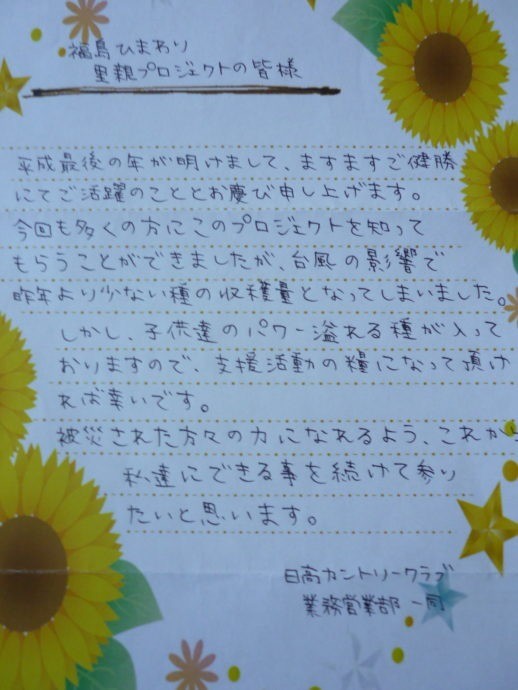 福島ひまわり
里親プロジェクトの皆様
平成最後の年が明けまして、ますますご健勝
にてご活躍のこととお慶び申し上げます。
今回も多くの方にこのプロジェクトを知って
もらうことができましたが、台風の影響で
昨年より少ない種の収穫量となってしまいました。
しかし、子供達のパワー溢れる種が入って
おりますので、支援活動の糧になって頂け
れば幸いです。
被災された方々の力になれるよう、これか
私達にできる事を続けて参り
たいと思います。
日高カントリークラブ
業務営業部一同